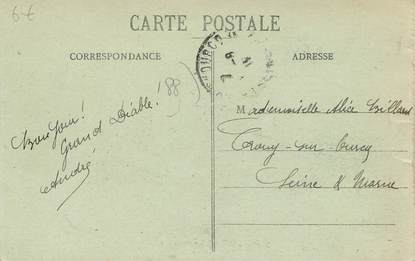 6 €
CARTE POSTALE
CORRESPONDANCE
ADRESSE
88
Bonjour!
Grand Diable!
André
Mademoiselle Alice
Crouy-sur-Ourcq
Seine & Marne